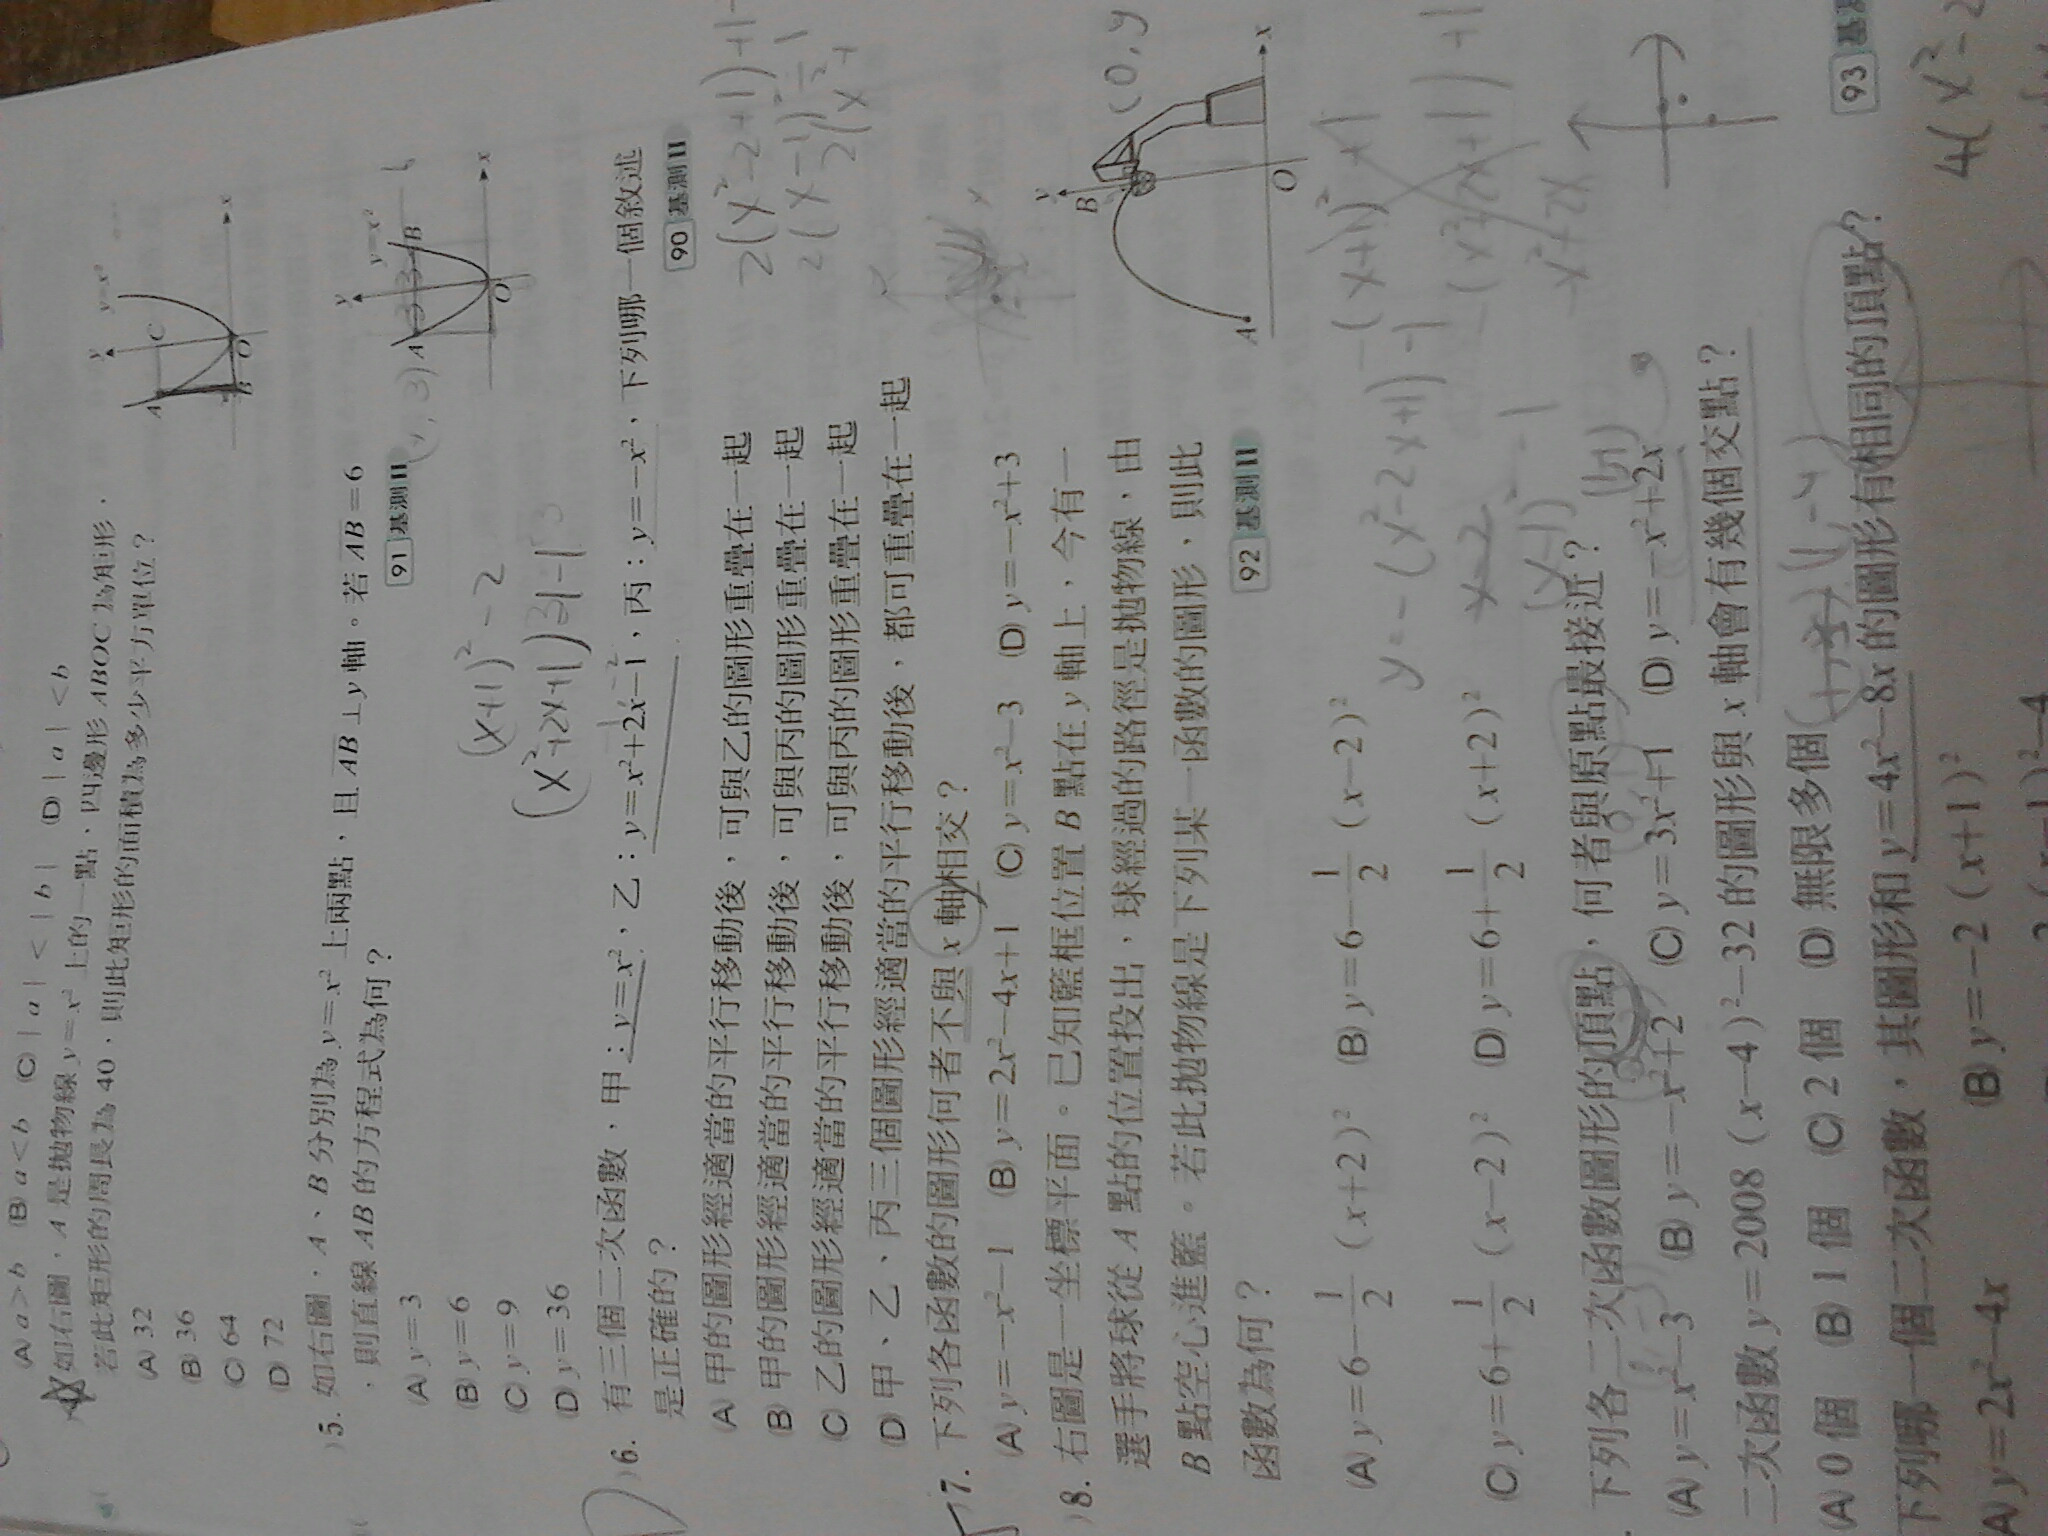 (A) a>b (B) a<b (C) |a|<|b| (D) |a|<b
如右圖，A 是拋物線 y=x² 上的一點，四邊形 ABOC 為矩形，
若此矩形的周長為 40，則此矩形的面積為多少平方單位？
(A) 32
(B) 36
(C) 64
(D) 72
y
y=x²
A
C
B
O
x
5. 如右圖，A、B 分別為 y=x² 上兩點，且 AB⊥y 軸。若 AB=6
，則直線 AB 的方程式為何？
91 基測II
(A) y=3
(B) y=6
(C) y=9
(D) y=36
y
y=x²
A
B
O
x
(x+1)²-2
(x²+2x+1)
6. 有三個二次函數，甲：y=x²，乙：y=x²+2x-1，丙：y=-x²，下列哪一個敘述
是正確的？
90 基測II
(A) 甲的圖形經適當的平行移動後，可與乙的圖形重疊在一起
(B) 甲的圖形經適當的平行移動後，可與丙的圖形重疊在一起
(C) 乙的圖形經適當的平行移動後，可與丙的圖形重疊在一起
(D) 甲、乙、丙三個圖形經適當的平行移動後，都可重疊在一起
7. 下列各函數的圖形何者不與 x 軸相交？
(A) y=-x²-1 (B) y=2x²-4x+1 (C) y=x²-3 (D) y=-x²+3
8. 右圖是一坐標平面。已知籃框位置 B 點在 y 軸上，今有一
選手將球從 A 點的位置投出，球經過的路徑是拋物線，由
B 點空心進籃。若此拋物線是下列某一函數的圖形，則此
函數為何？
92 基測II
y
B
A
O
x
(0, y
(A) y=6-1/2(x+2)² (B) y=6-1/2(x-2)²
(C) y=6+1/2(x-2)² (D) y=6+1/2(x+2)²
y=-(x²-2x+1)-1
下列各二次函數圖形的頂點，何者與原點最接近？
(A) y=x²-3 (B) y=-x²+2 (C) y=3x²+1 (D) y=-x²+2x
二次函數 y=2008(x-4)²-32 的圖形與 x 軸會有幾個交點？
(A) 0 個 (B) 1 個 (C) 2 個 (D) 無限多個
93 基
下列哪一個二次函數，其圖形和 y=4x²-8x 的圖形有相同的頂點？
(A) y=2x²-4x (B) y=-2(x+1)²